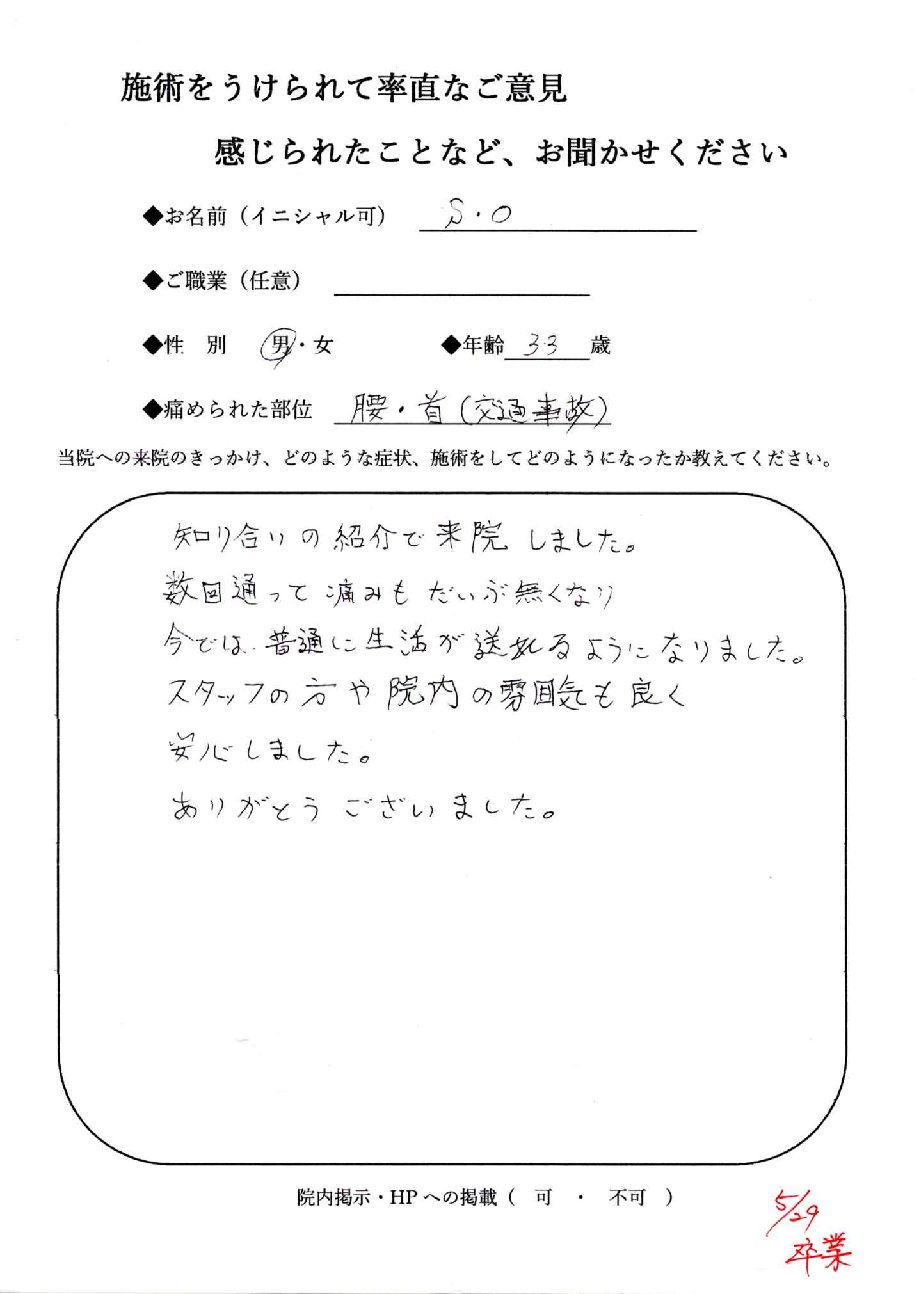 施術をうけられて率直なご意見
感じられたことなど、お聞かせください
◆お名前（イニシャル可） S・O
◆ご職業（任意）
◆性 別 男・女 ◆年齢 33 歳
◆痛められた部位 腰・首（交通事故）
当院への来院のきっかけ、どのような症状、施術をしてどのようになったか教えてください。
知り合いの紹介で来院しました。
数回通って痛みもだいぶ無くなり
今では普通に生活が送れるようになりました。
スタッフの方や院内の雰囲気も良く
安心しました。
ありがとうございました。
院内掲示・HPへの掲載（ 可 ・ 不可 ）
5/29
卒業